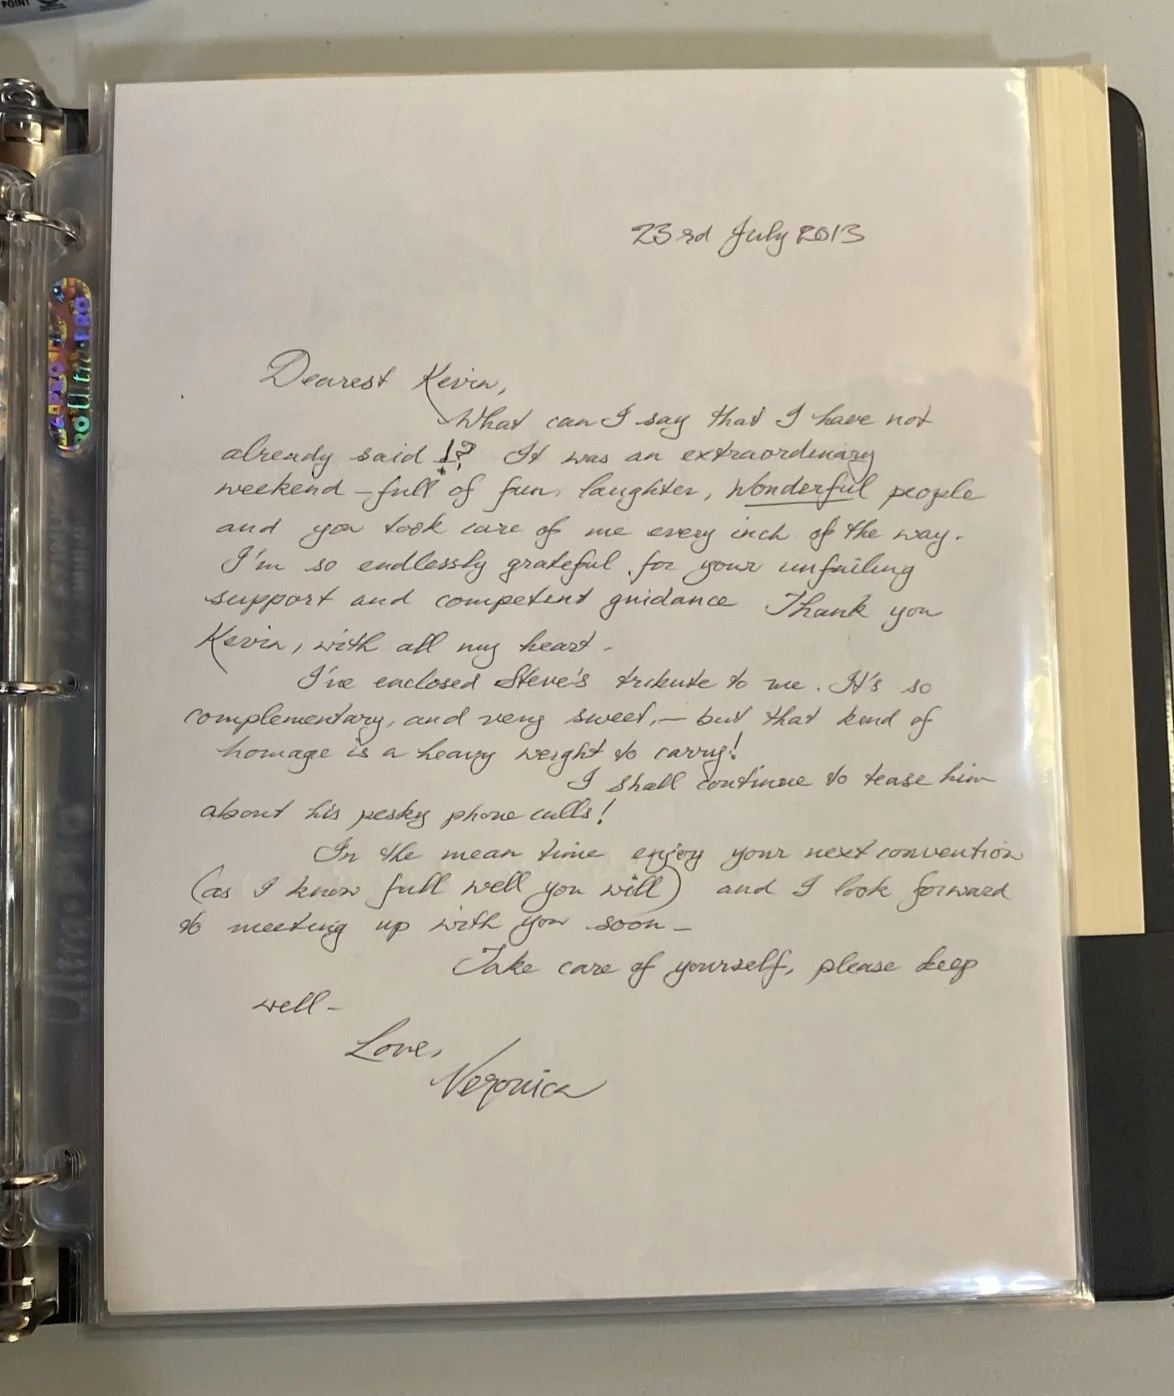 POINT
23rd July 2013
Dearest Kevin,
What can I say that I have not
already said !? It was an extraordinary
weekend – full of fun, laughter, wonderful people
and you took care of me every inch of the way.
I'm so endlessly grateful for your unfailing
support and competent guidance Thank you
Kevin, with all my heart.
I've enclosed Steve's tribute to me. It's so
complementary, and very sweet, – but that kind of
homage is a heavy weight to carry!
I shall continue to tease him
about his pesky phone calls!
In the mean time enjoy your next convention
(as I know full well you will) and I look forward
to meeting up with you soon –
Take care of yourself, please keep
well –
Love,
Veronica
Ultra•PRO